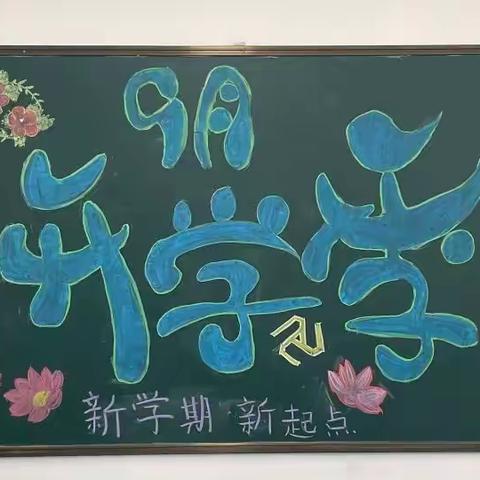 9月
开学季
新学期 新起点